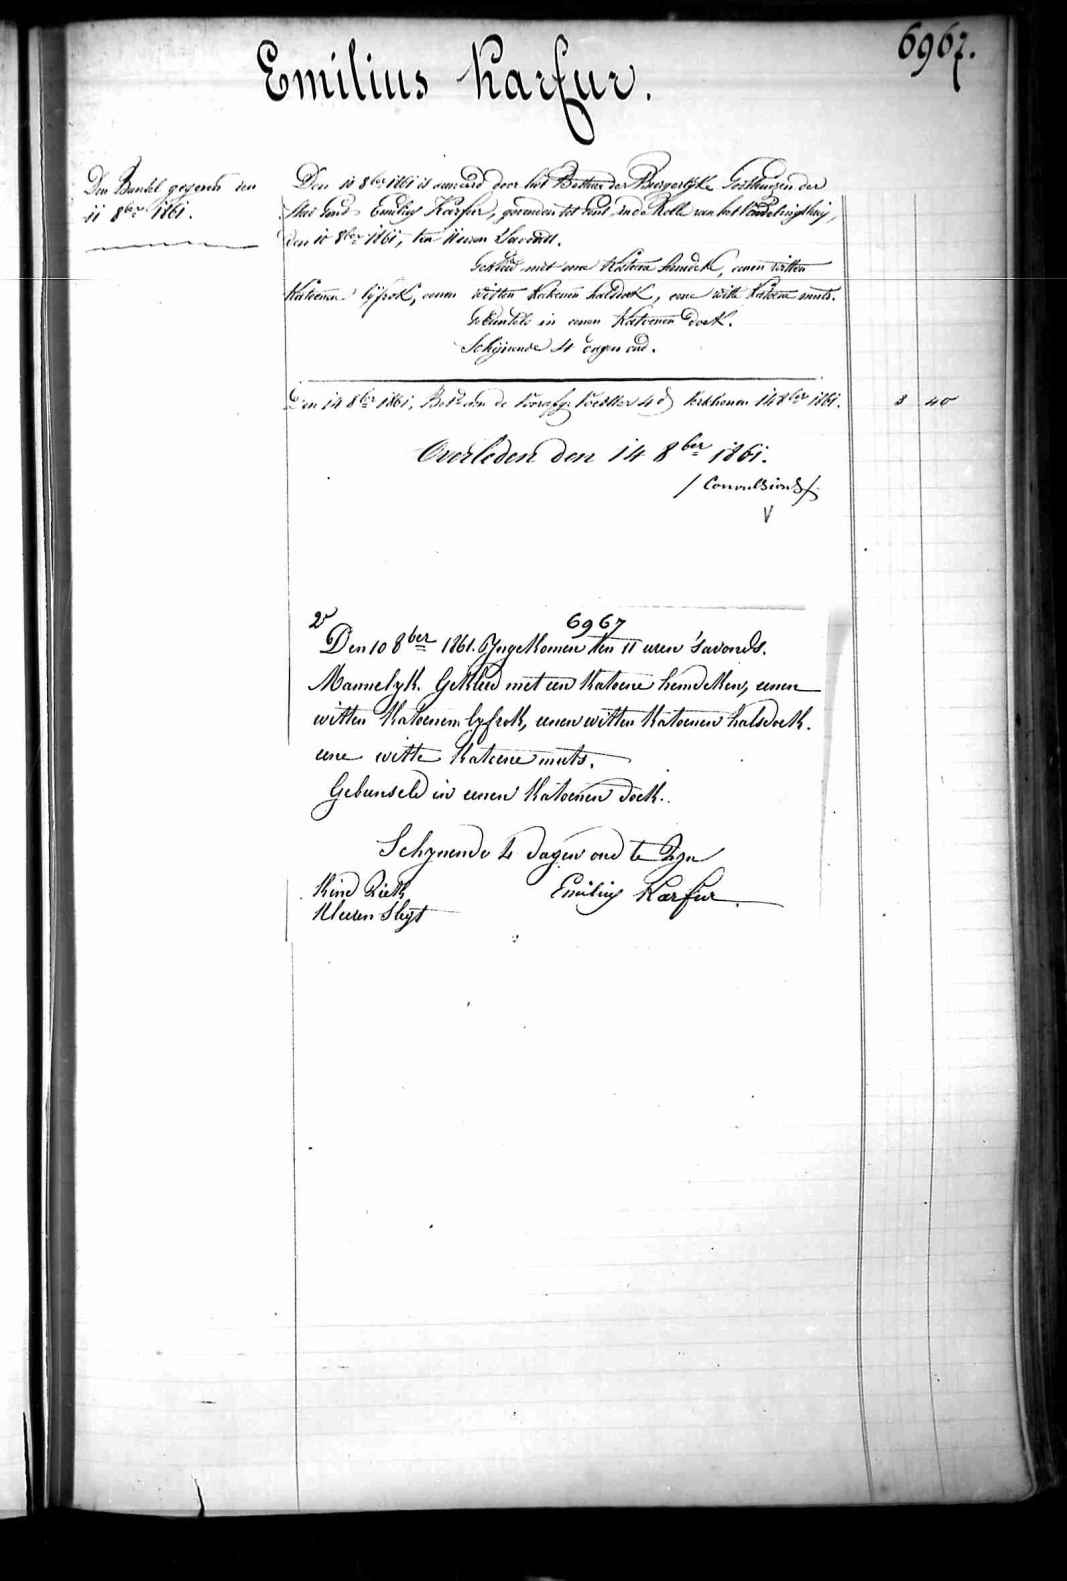 6967.
Emilius Karfur.
Den Bundel gegeven den
11 8ber 1861.
Den 10 8ber 1861 is aenveird door het Bestuer der Burgerlyke Godshuizen der
stad Gend Emilius Karfur, gevonden tot Gent in de Rolle van het Vondelinghuij,
den 10 8ber 1861, ten 11 uren s'avonds.
Gekleed met eene Katoene hemdek, eenen witten
Katoenen lijfrok, eenen witten Katoenen halsdoek, eene witte Katoene muts.
Gebunseld in eenen Katoenen doek.
Schijnende 4 dagen oud.
Den 14 8ber 1861, aen de Voedster 4 d 14 8ber 1861. 3 40
Overleden den 14 8ber 1861.
/Convulsions/
V
6967
Den 10 8ber 1861. Yngekomen ten 11 uren 'savonds.
Mannelyk. Gekleed met een Katoene hemdeken, eenen
witten Katoenen lyfrok, eenen witten Katoenen halsdoek.
eene witte Katoene muts.
Gebunseld in eenen Katoenen doek.
Schynende 4 dagen oud te Zyn
Kind Ziek Emilius Karfur.
Kleeren Slegt